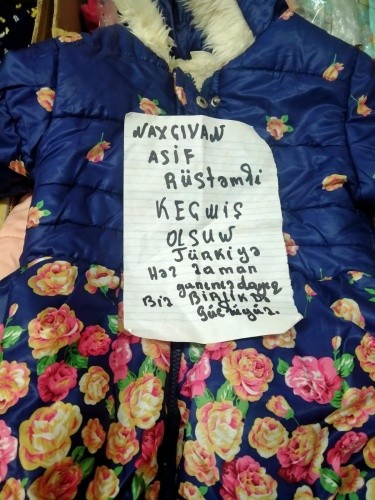 NAXÇIVAN
ASİF
RÜStəmli
KEÇMİŞ
OLSUN
TÜRKiYə
Hər zaman
yanınızdayıq
Biz BİRLİKDə
Güclüyüz.